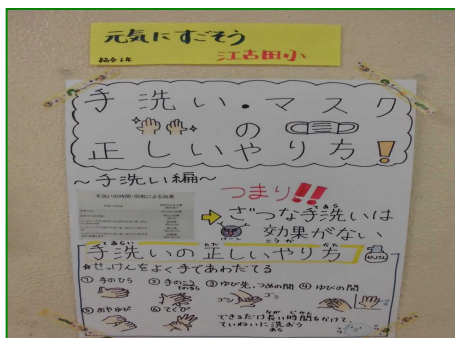 元気にすごそう
江古田小
手洗い・マスク
の
正しいやり方!
~手洗い編~
手洗いの時間・回数による効果
つまり!!
ざつな手洗いは
効果がない
手洗いの正しいやり方
せっけん
☆せっけんをよく手であわだてる
① 手のひら ② 手のこう ③ ゆび先、つめの間 ④ ゆびの間
ゴシ ゴシ
⑤ おやゆび ⑥ てくび
できるだけ長い時間をかけて、
ていねいに洗おう